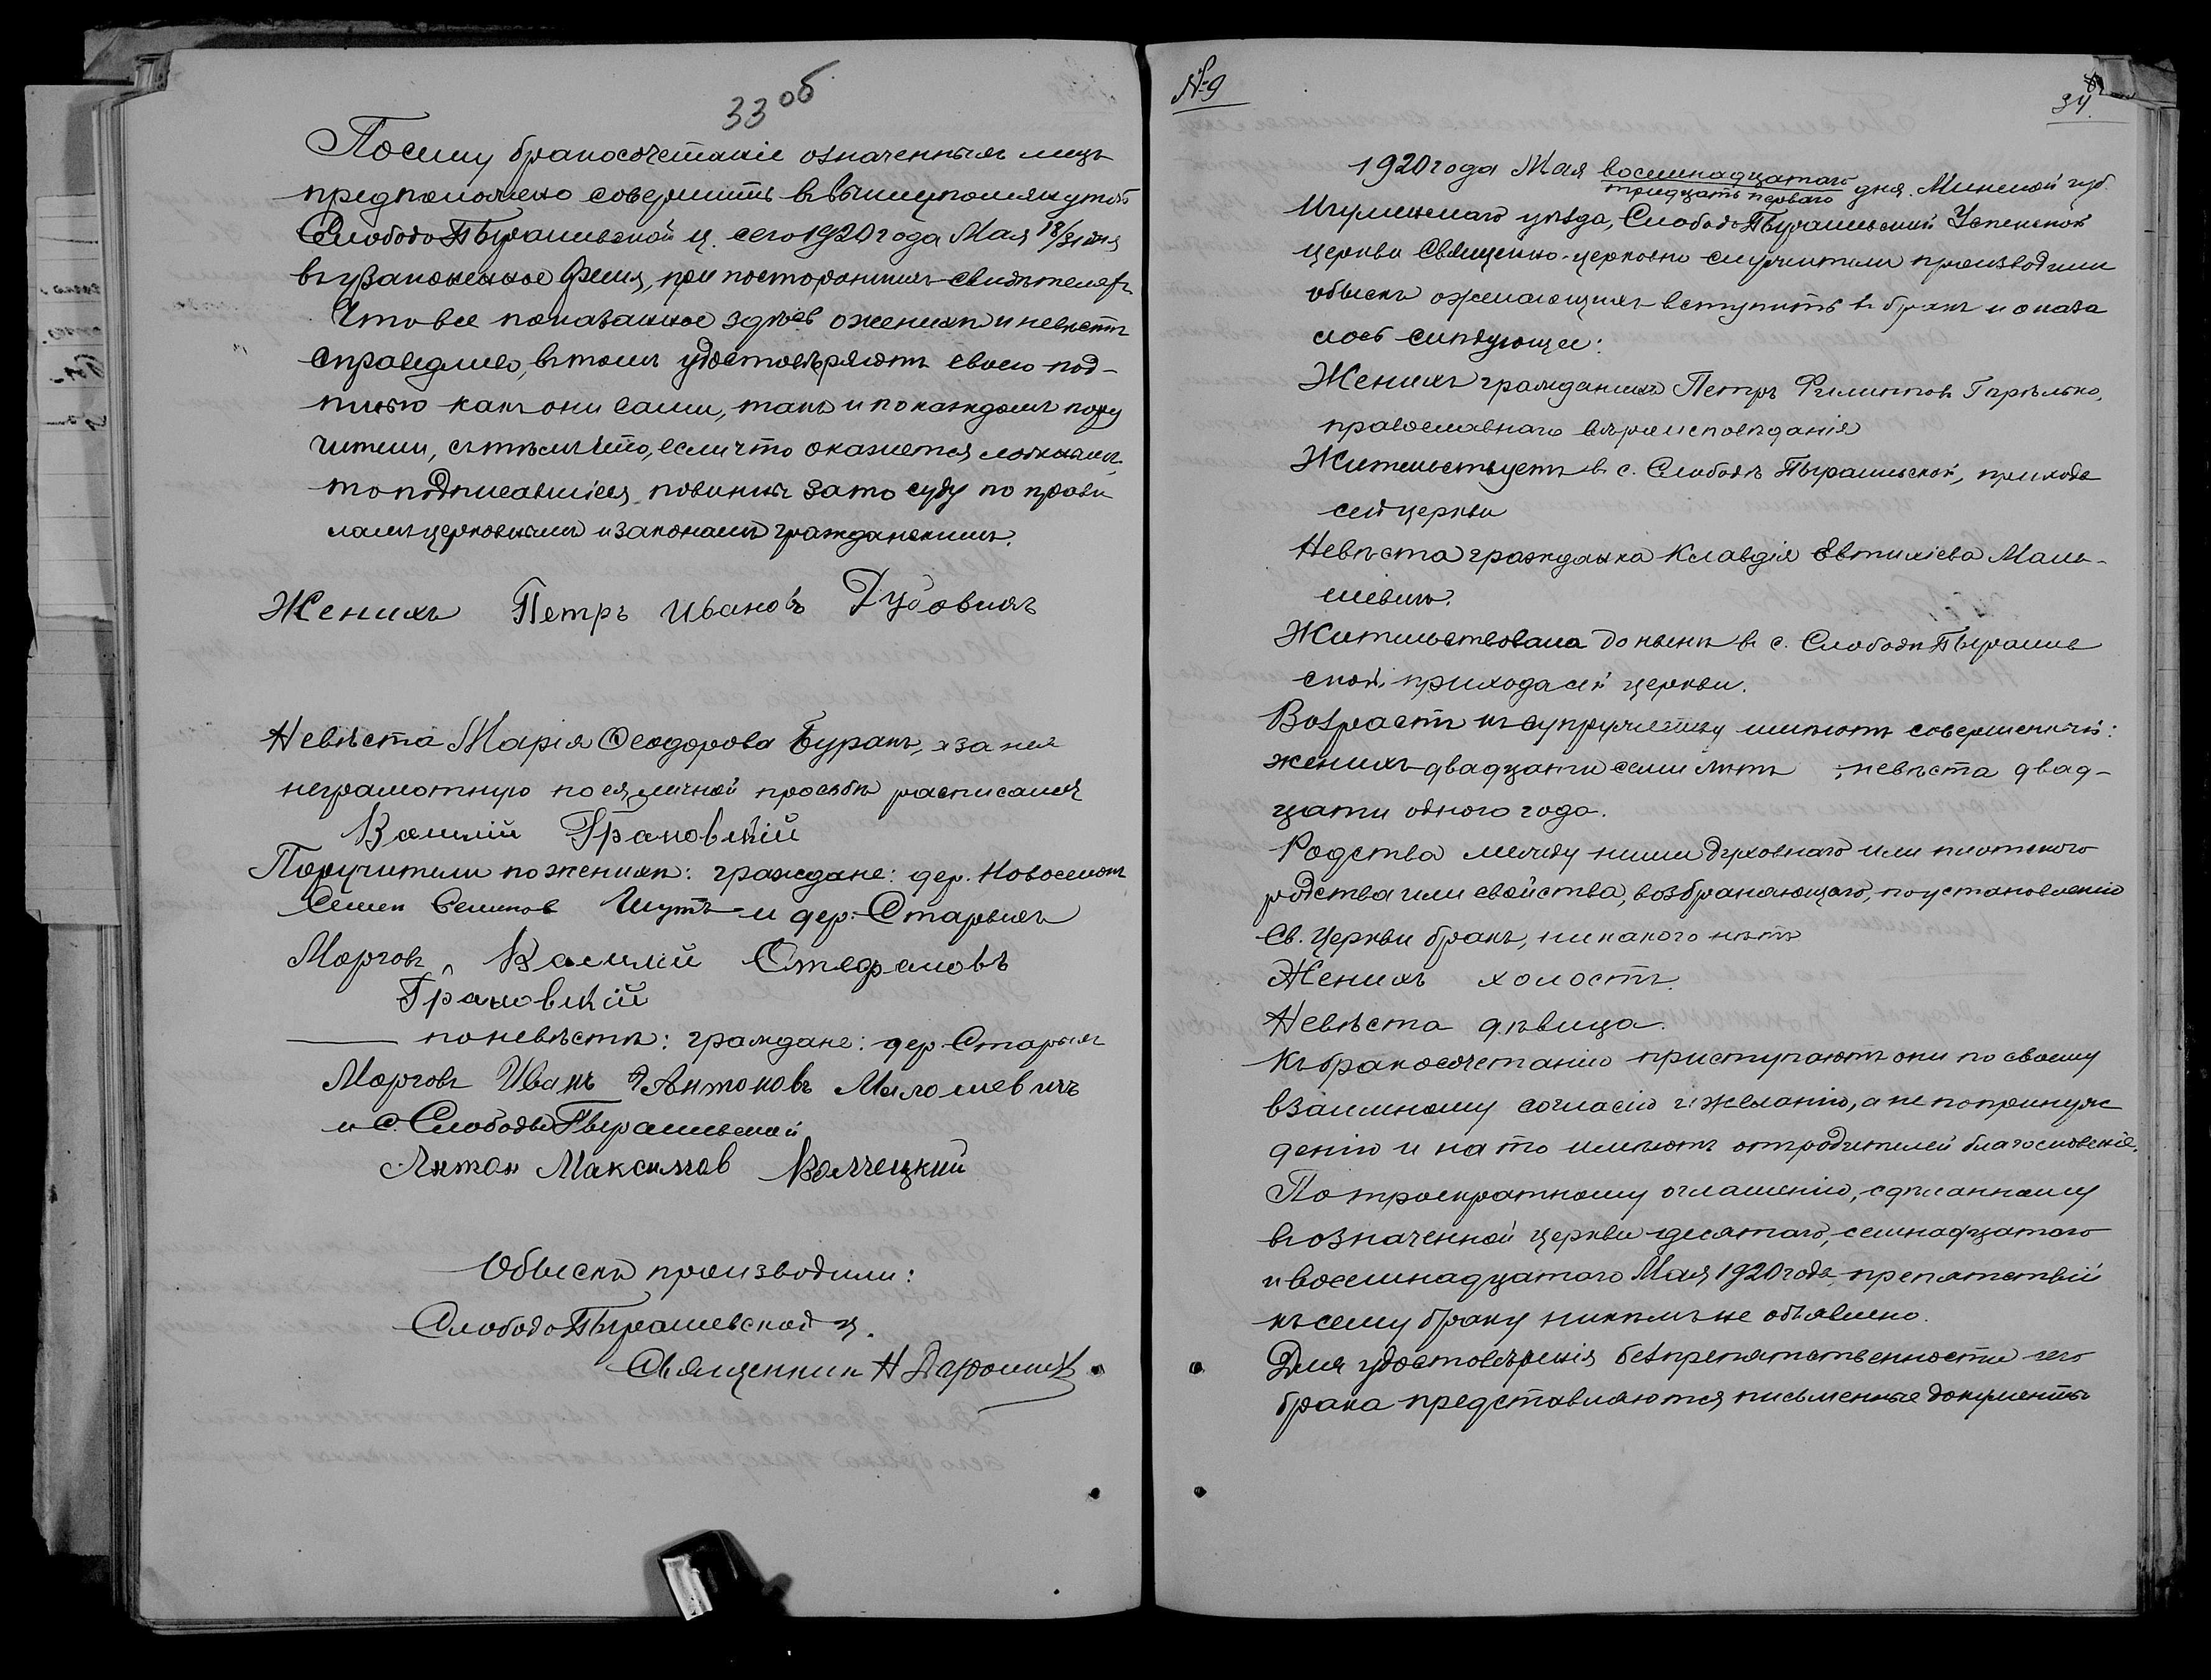 33 об
Посему бракосочетаніе означенныхъ лицъ
предположено совершить въ вышеупомянутой
Слободо Пырашевской ц. сего 1920 года Мая 18/31 дня
въ узаконенное время, при постороннихъ свидѣтеляхъ
Что все показанное здѣсь о женихѣ и невѣстѣ
справедливо, въ томъ удостовѣряютъ своею под-
писью какъ они сами, такъ и по каждомъ пору
чители, съ тѣмъ что, если что окажется ложнымъ
то подписавшіеся повинны за то суду по прави
ламъ церковнымъ и законамъ гражданскимъ.
Женихъ Петръ Ивановъ Дубовикъ
Невѣста Марія Ѳеодорова Буракъ, а за нея
неграмотную по ея личной просьбѣ расписался
Василій Грановскій
Поручители по женихѣ: граждане: дер. Новоселокъ
Семен Семинов Шутъ и дер. Старыхъ
Морговъ Василій Стефановъ
Грановскій
по невѣстѣ: граждане: дер. Старыхъ
Морговъ Иванъ Антоновъ Малашевичъ
и с. Слободы Пырашевской
Антон Максимов Волчецкий
Обыскъ производили:
Слободо Пырашевской ц.
Священникъ Н
№ 9
34.
1920 года Мая восемнадцатаго
тридцать перваго дня. Минской губ.
Игуменскаго уѣзда, Слободо Пырашевской Успенской
церкви Священно-церковно служители производили
обыскъ о желающихъ вступить въ бракъ и оказа
лось слѣдующее:
Женихъ гражданинъ Петръ Филиппов Гарѣлько,
православнаго вѣроисповѣданія
Жительствуетъ въ с. Слободѣ Пырашевской, прихода
сей церкви
Невѣста гражданка Клавдія Евтихіева Мала-
шевичъ.
Жительствовала до нынѣ въ с. Слободѣ Пырашев
ской, прихода сей церкви.
Возрастъ къ супружеству имѣютъ совершенный:
женихъ двадцати семи лѣтъ, невѣста двад-
цати одного года.
Родства между ними духовнаго или плотского
родства или свойства, возбраняющаго, по установленію
Св. Церкви бракъ, никакого нѣтъ
Женихъ холостъ.
Невѣста дѣвица.
Къ бракосочетанію приступаютъ они по своему
взаимному согласію и желанію, а не по принуж
денію и на то имѣютъ отъ родителей благословеніе.
По троекратному оглашенію, сдѣланному
въ означенной церкви десятаго, семнадцатаго
и восемнадцатаго Мая 1920 года, препятствій
къ сему браку никѣмъ не объявлено.
Для удостовѣренія безпрепятственности сего
брака представляются письменные документы